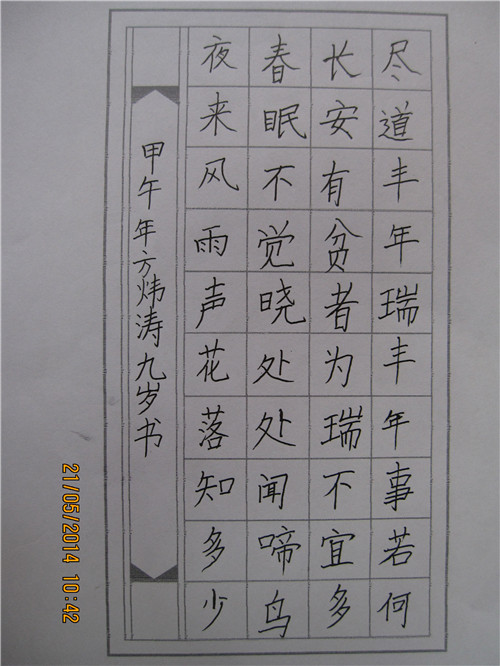 尽道丰年瑞丰年事若何
长安有贫者为瑞不宜多
春眠不觉晓处处闻啼鸟
夜来风雨声花落知多少
甲午年方炜涛九岁书
21/05/2014 10:42